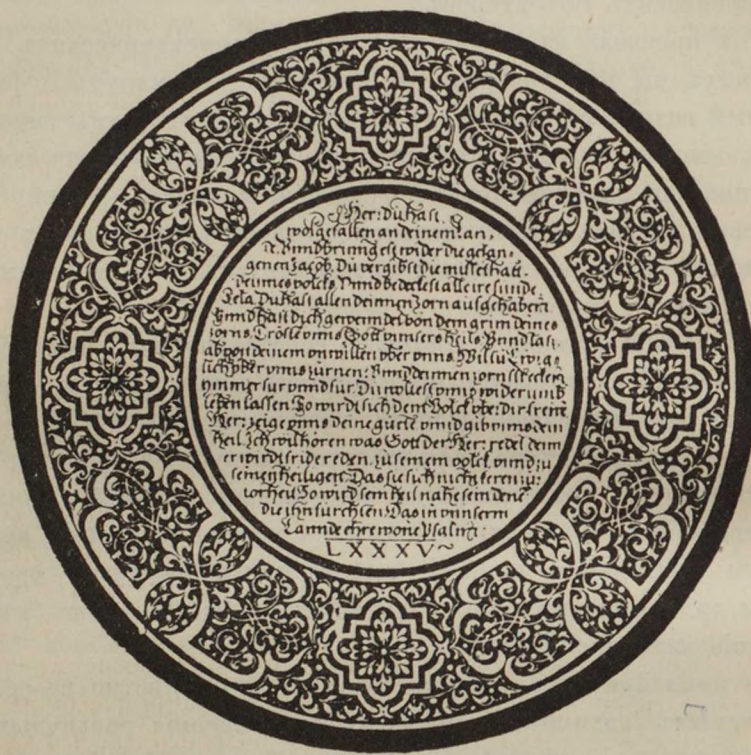 Her: du hast
wolgefallen an deinem lan,
de. Vnnd bringest wider die gefan,
genen Jacob. Du vergibst die missethatt
deinnes volcks. Vnnd bedeckest alle ire sunde
Sela. Du hast allen deinnen Zorn aufgehaben
Vnnd hast dich gewendet von dem grim deines
zorns. Tröste vnns Gott vnnsers heils. Vnnd las,
ab von deinem vnwillen vber vnns. Wiltu
vber vnns zürnen: Vnnd deinnen zorn strecken
ymmer fur vnnd fur. Du wollest vnns wider
leben lassen. So wirdt sich dein Volck vber dir
Her: zeige vnns deine gutte vnnd gib vnns dein
heil. Ich wil hören was Gott der Her: redet denn
er wirdt fride reden, zu seinem volck, vnnd zu
seinen heiligen. Das sie sich nicht keren zur
torheit. So wird sein heil nahe sein denen
die ihn furchten. Das in vnnserm
Lannde ehre wone Psalm:
LXXXV~